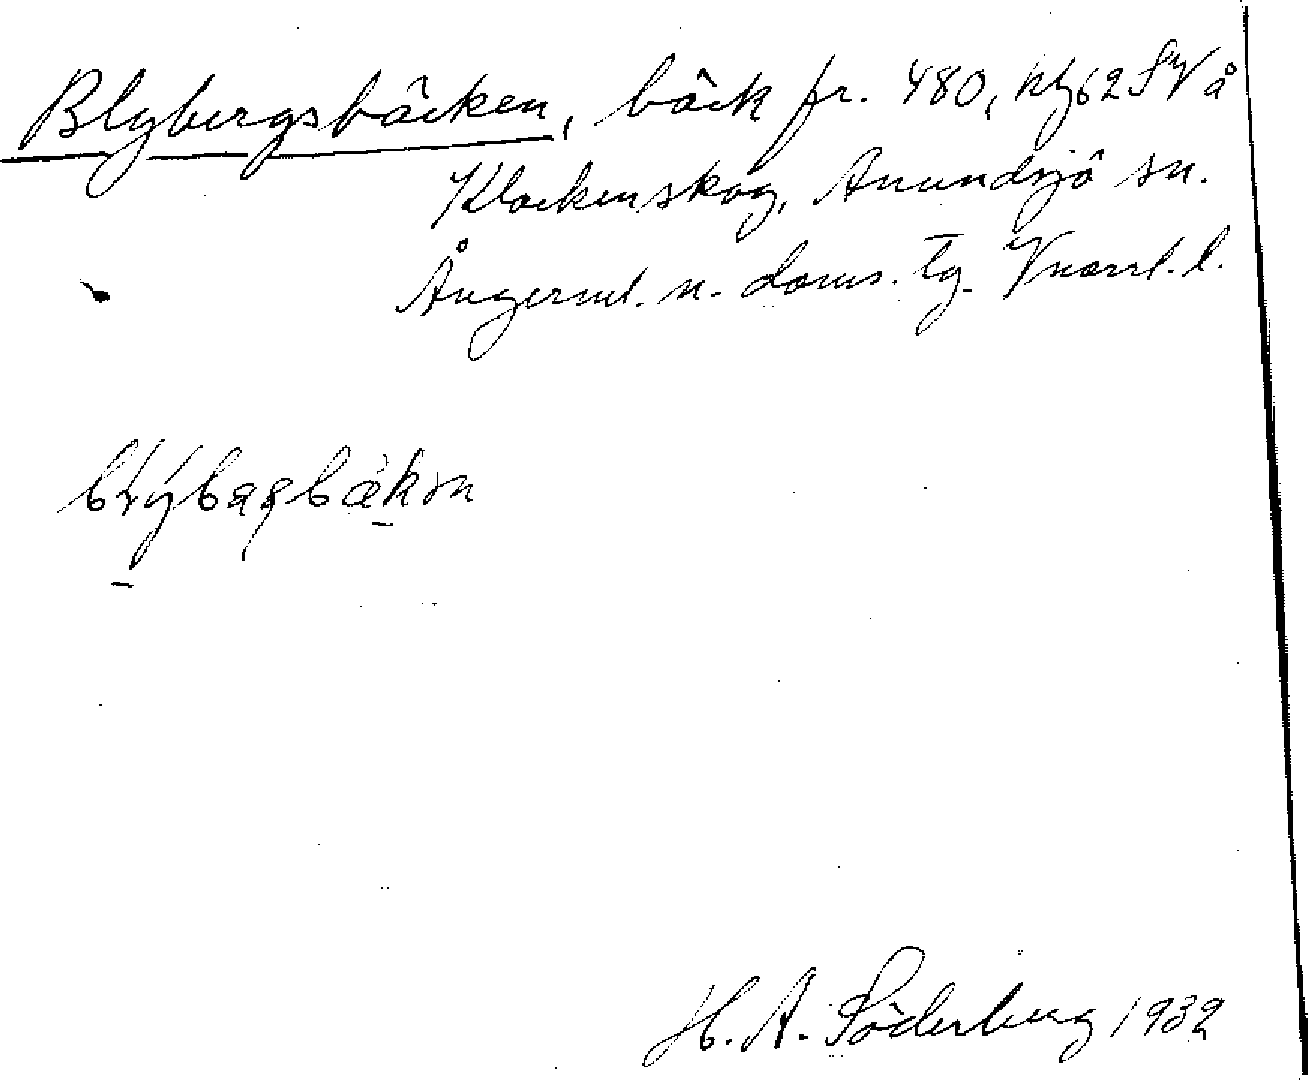 Blybergsbäcken, bäck fr. 480, kbl 62 SV å
Klockenskog, Anundsjö sn.
Ångerml. n. doms. tg. Vnorrl. l.
H. A. Söderberg 1932